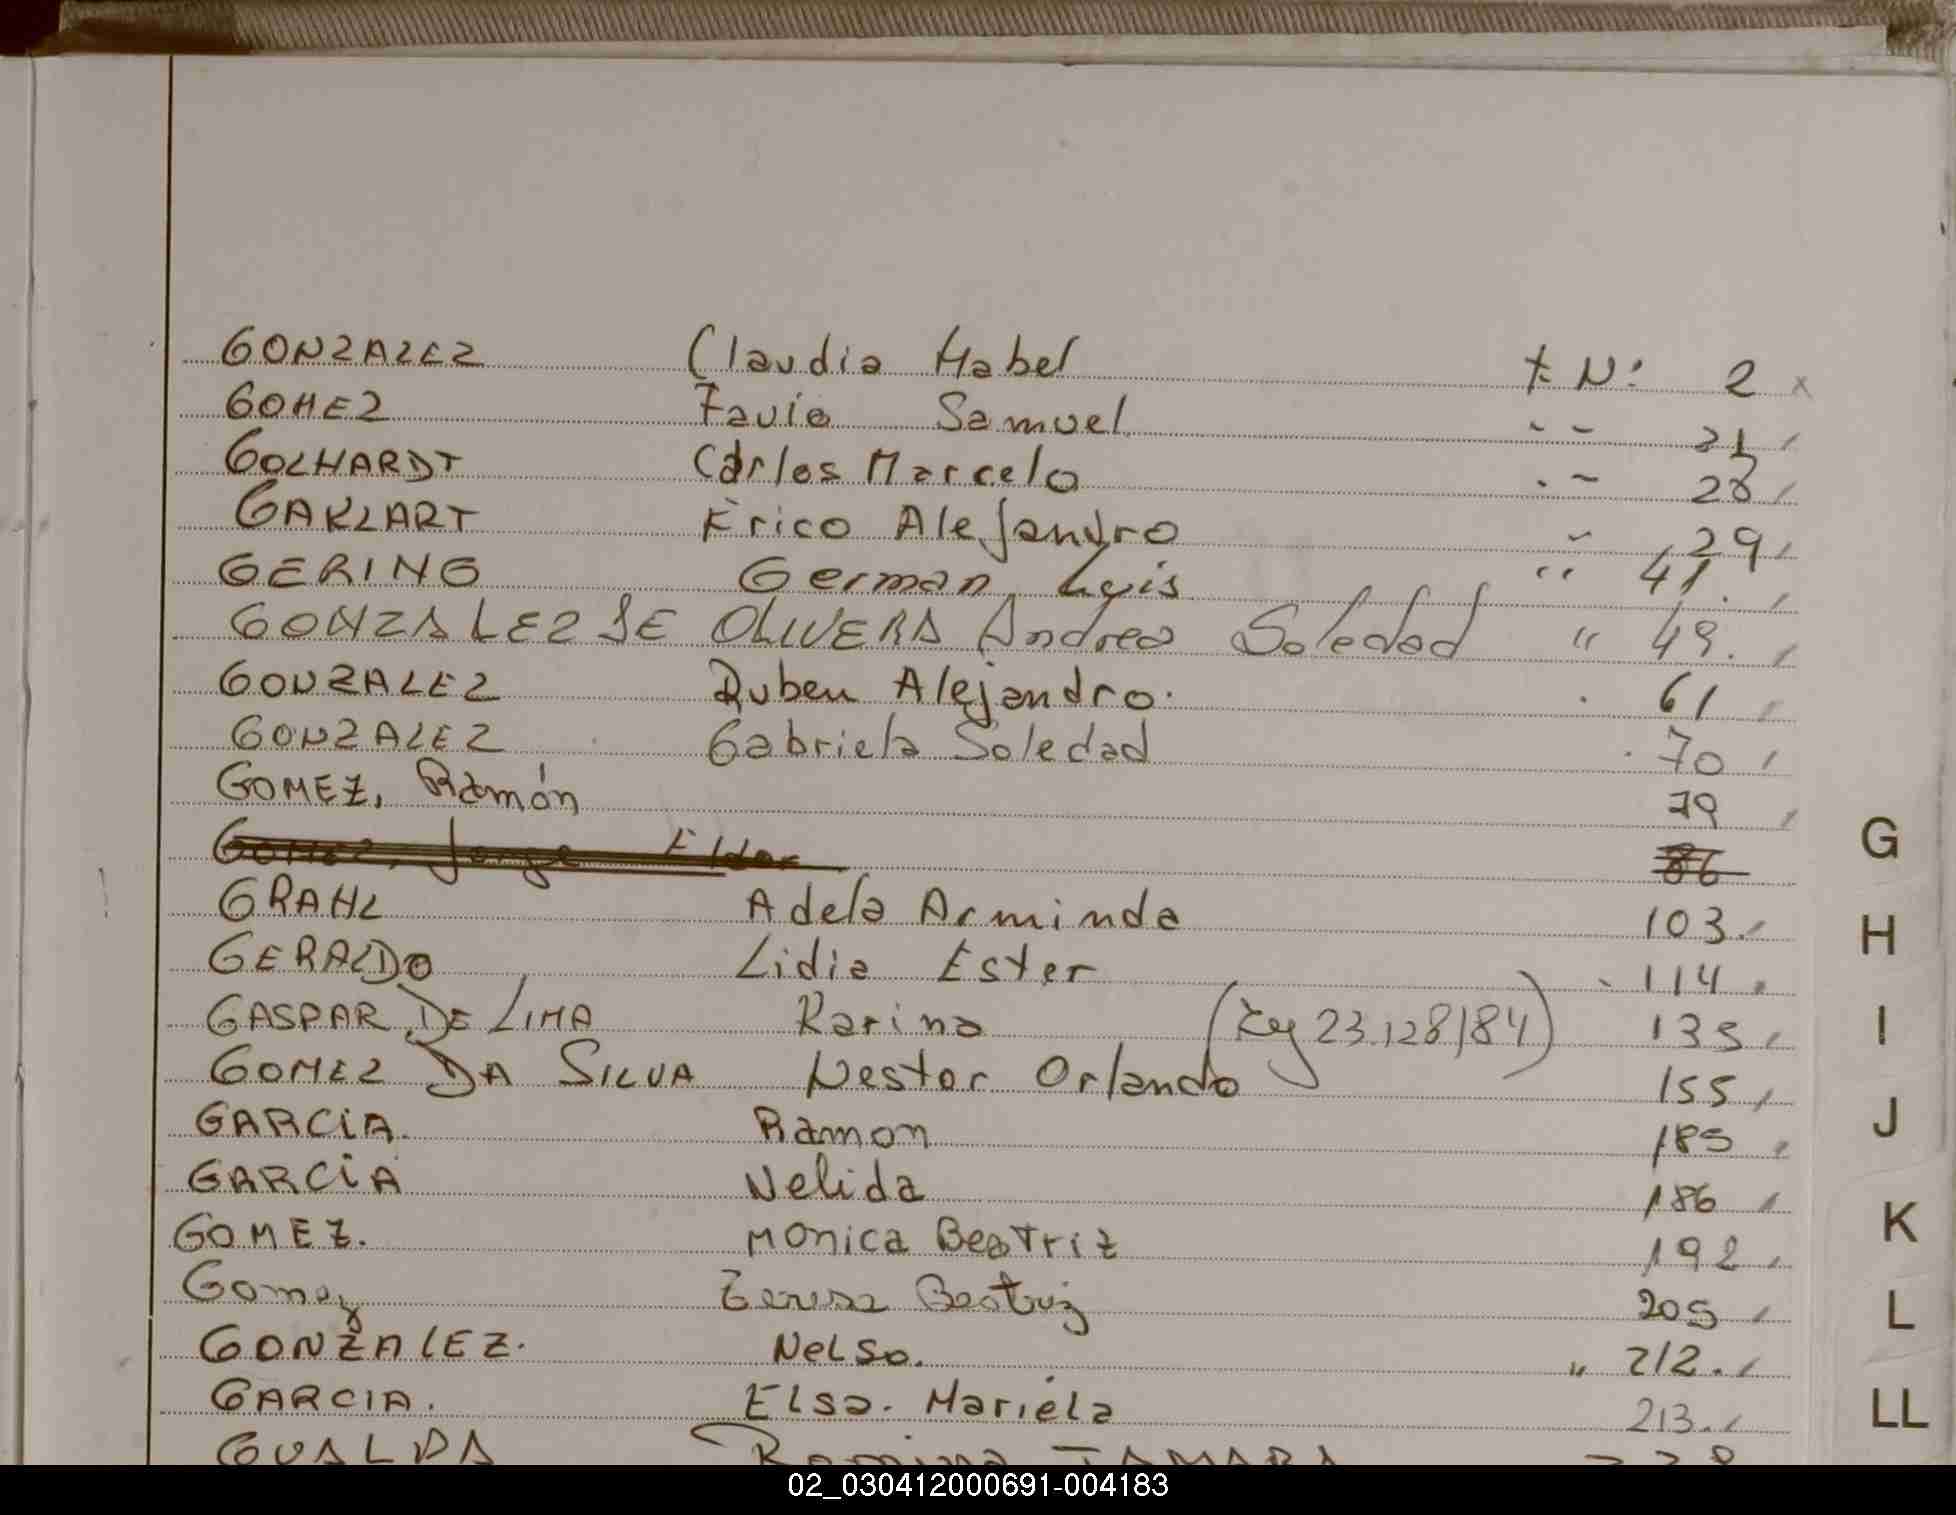 GONZALEZ Claudia Mabel F. Nº 2 x
GOMEZ Favio Samuel " " 21
GOLHARDT Carlos Marcelo " " 28
GAKLART Erico Alejandro " 29
GERING German Luis " 41.
GONZALEZ DE OLIVERA Andrea Soledad " 49.
GONZALEZ Ruben Alejandro. 61
GONZALEZ Gabriela Soledad 70
GOMEZ, Ramón 79
GOMEZ, Jorge Elder 86
GRAHL Adela Arminda 103
GERALDO Lidia Ester 114
GASPAR DE LIMA Karina (Ley 23.128/84) 135
GOMEZ DA SILVA Nestor Orlando 155
GARCIA. Ramon 185
GARCIA Nelida 186
GOMEZ. Monica Beatriz 192
Gomez Teresa Beatriz 205
GONZALEZ. Nelso. " 212.
GARCIA. Elsa. Mariela 213.
GUALDA Romina TAMARA
G
H
I
J
K
L
LL
02_030412000691-004183